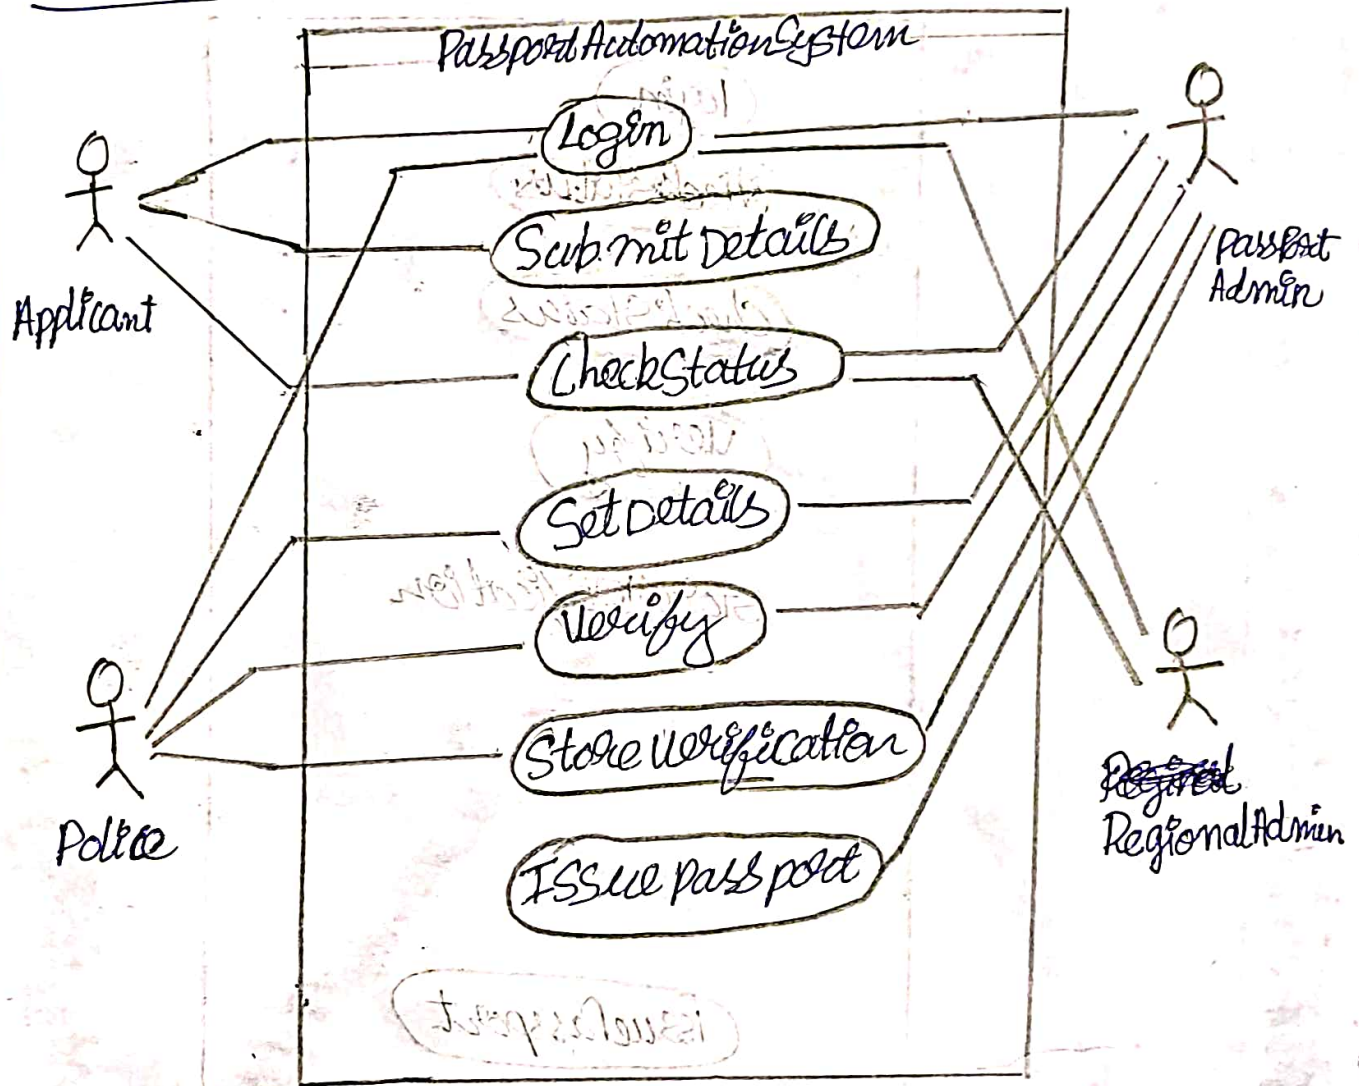 PassportAutomationSystem
Login
Submit Details
CheckStatus
Set Details
Verify
Store Verification
Issue passport
Applicant
Police
Passport
Admin
RegionalAdmin